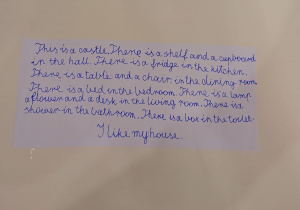 This is a castle. There is a shelf and a cupboard
in the hall. There is a fridge in the kitchen.
There is a table and a chair in the dining room.
There is a bed in the bedroom. There is a lamp
a flower and a desk in the living room. There is a
shower in the bathroom. There is a box in the toilet.
I like my house.